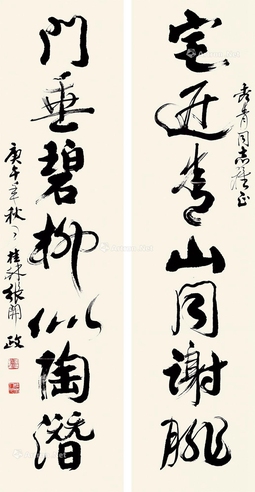 宅近青山同谢朓
门垂碧柳似陶潜
青同志雅正
庚午年秋 桂林张开政